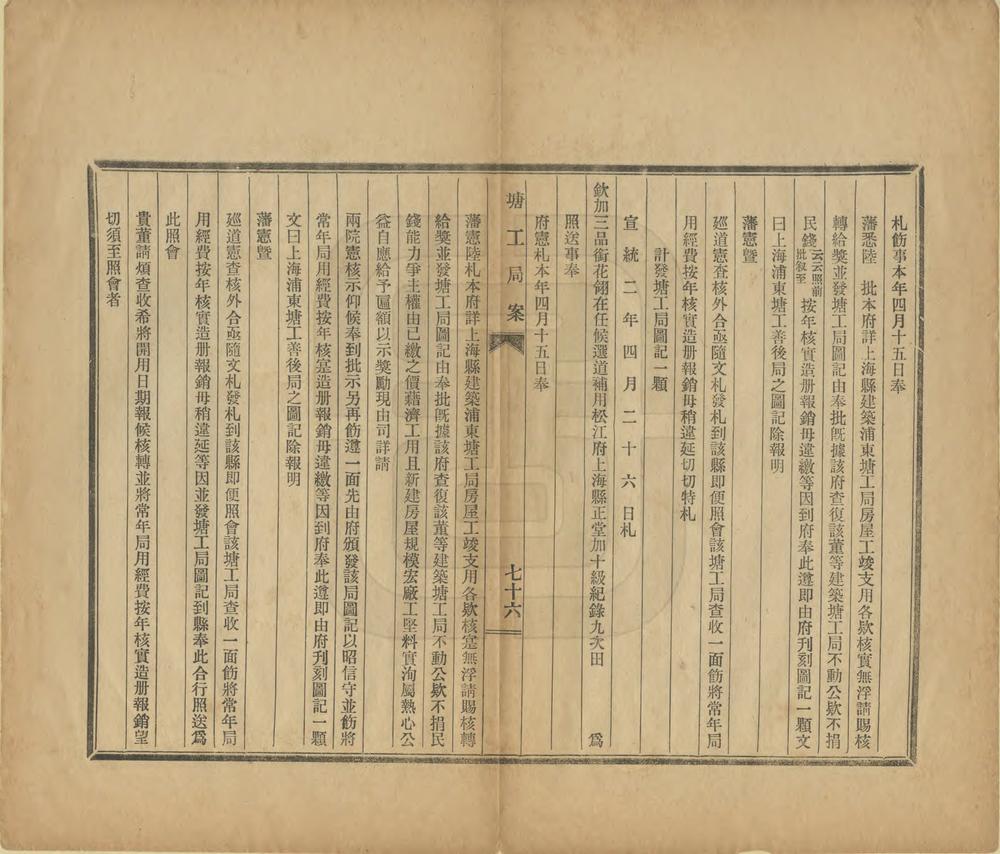 札飭事本年四月十五日奉
藩憲陸　批本府詳上海縣建築浦東塘工局房屋工竣支用各欵核實無浮請賜核
轉給獎並發塘工局圖記由奉批旣據該府查復該董等建築塘工局不動公欵不捐
民錢云云照前批叙至按年核實造册報銷毋違繳等因到府奉此遵卽由府刋刻圖記一顆文
曰上海浦東塘工善後局之圖記除報明
藩憲曁
廵道憲查核外合亟隨文札發札到該縣卽便照會該塘工局查收一面飭將常年局
用經費按年核實造册報銷毋稍違延切切特札
計發塘工局圖記一顆
宣統二年四月二十六日札
欽加三品銜花翎在任候選道補用松江府上海縣正堂加十級紀錄九次田　爲
照送事奉
府憲札本年四月十五日奉
塘工局案
七十六
藩憲陸札本府詳上海縣建築浦東塘工局房屋工竣支用各欵核寔無浮請賜核轉
給獎並發塘工局圖記由奉批旣據該府查復該董等建築塘工局不動公欵不捐民
錢能力爭主權由已繳之價藉濟工用且新建房屋規模宏敞工堅料實洵屬熱心公
益自應給予匾額以示獎勵現由司詳請
兩院憲核示仰候奉到批示另再飭遵一面先由府頒發該局圖記以昭信守並飭將
常年局用經費按年核寔造册報銷毋違繳等因到府奉此遵卽由府刋刻圖記一顆
文曰上海浦東塘工善後局之圖記除報明
藩憲曁
廵道憲查核外合亟隨文札發札到該縣卽便照會該塘工局查收一面飭將常年局
用經費按年核實造册報銷毋稍違延等因並發塘工局圖記到縣奉此合行照送爲
此照會
貴董請煩查收希將開用日期報候核轉並將常年局用經費按年核實造册報銷望
切須至照會者